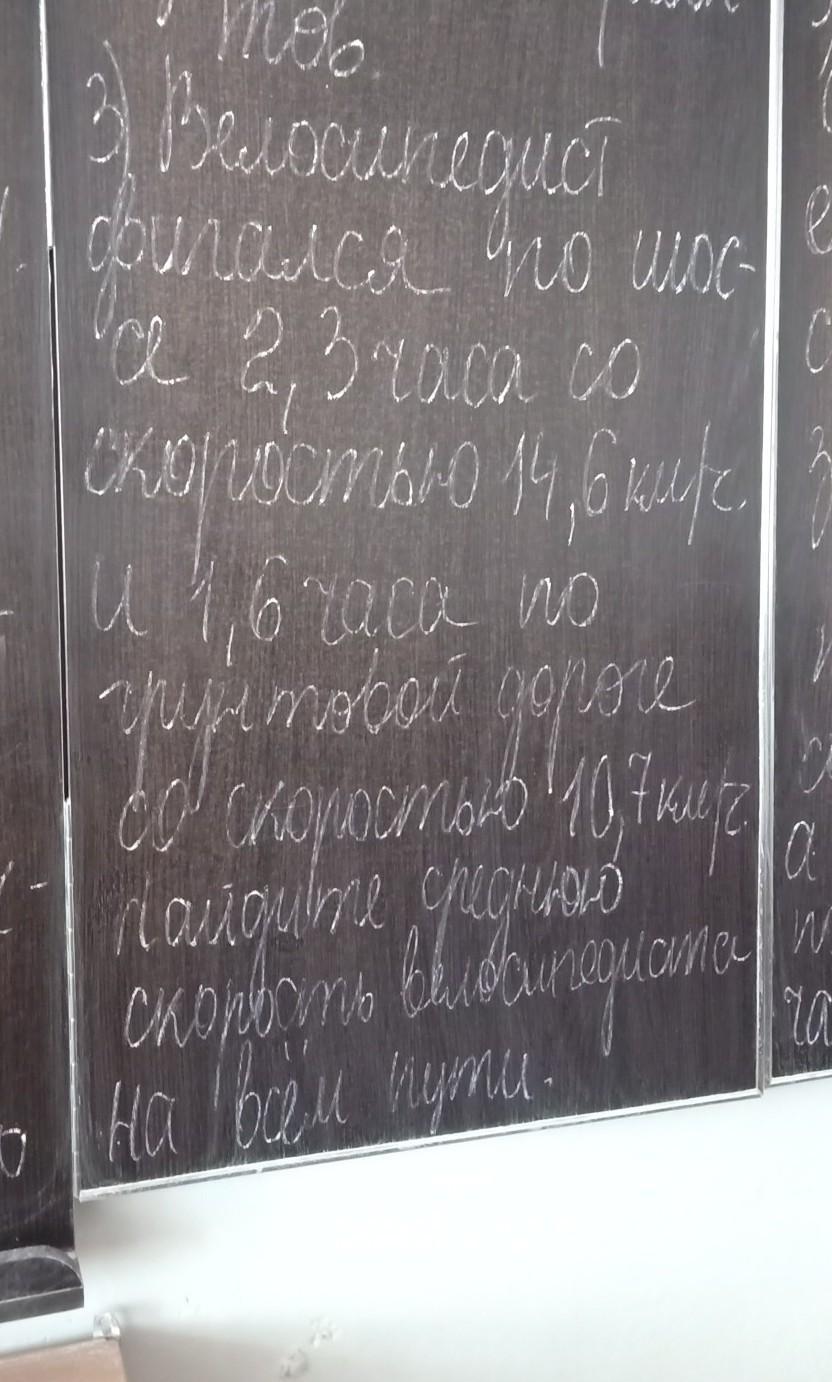 тов
3) Велосипедист
двигался по шос-
се 2,3 часа со
скоростью 14,6 км/ч.
и 1,6 часа по
грунтовой дороге
со скоростью 10,7 км/ч.
Найдите среднюю
скорость велосипедиста
на всём пути.